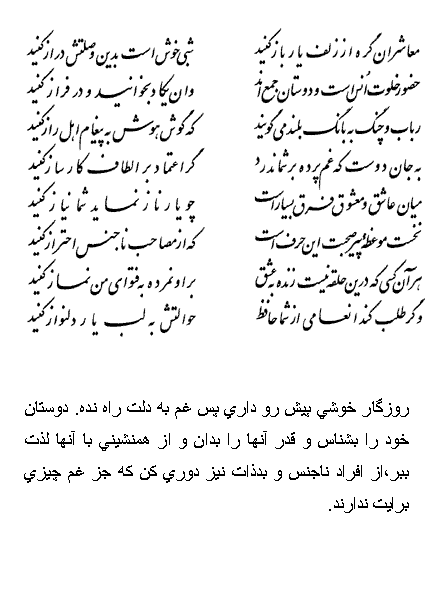 معاشران گره از زلف یار باز کنید شبی خوش است بدین وصلتش دراز کنید
حضور خلوت اُنس است و دوستان جمع اند وان یکاد بخوانید و در فراز کنید
رباب و چنگ به بانگ بلند می گویند که گوش هوش به پیغام اهل راز کنید
به جان دوست که غم پرده بر شما ندرد گر اعتماد بر الطاف کارساز کنید
میان عاشق و معشوق فرق بسیار است چو یار ناز نماید شما نیاز کنید
نخست موعظه پیر صحبت این حرف است که از مصاحب ناجنس احتراز کنید
هر آن کسی که درین حلقه نیست زنده به عشق بر او نمرده به فتوای من نماز کنید
وگر طلب کند انعامی از شما حافظ حوالتش به لب یار دلنواز کنید
روزگار خوشي پيش رو داري پس غم به دلت راه نده. دوستان
خود را بشناس و قدر آنها را بدان و از همنشيني با آنها لذت
ببر،از افراد ناجنس و بدذات نيز دوري كن كه جز غم چيزي
برايت ندارند.